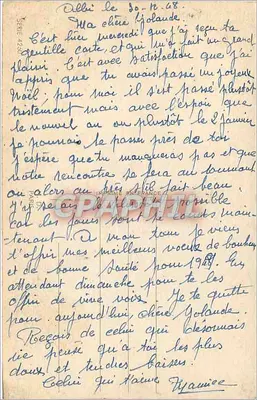 Albi le 30-12-48
Ma chère Yolande.
C'est hier mercredi que j'ai reçu ta
gentille carte, et qui m'a fait un grand
plaisir. C'est avec satisfaction que j'ai
appris que tu avais passé un joyeux
Noël; pour moi il s'est passé plutôt
tristement mais avec l'espoir que
le nouvel an ou plutôt le 2 Janvier
je pourrais le passer près de toi
J'espère que tu manqueras pas et que
notre rencontre se fera au tournant
ou alors au près s'il fait beau
J'y serai le plus tôt possible
car les jours sont main-
tenant A mon tour je viens
t'offrir mes meilleurs voeux de bonheur
et de bonne Santé pour 1949 En
attendant dimanche pour te les
offrir de vive voix. Je te quitte
pour aujourd'hui, chère Yolande.
Reçois de celui qui désormais
ne pense qu'à toi les plus
doux et tendres baisers.
Celui qui t'aime Maurice
CPAPHIL
SERIE